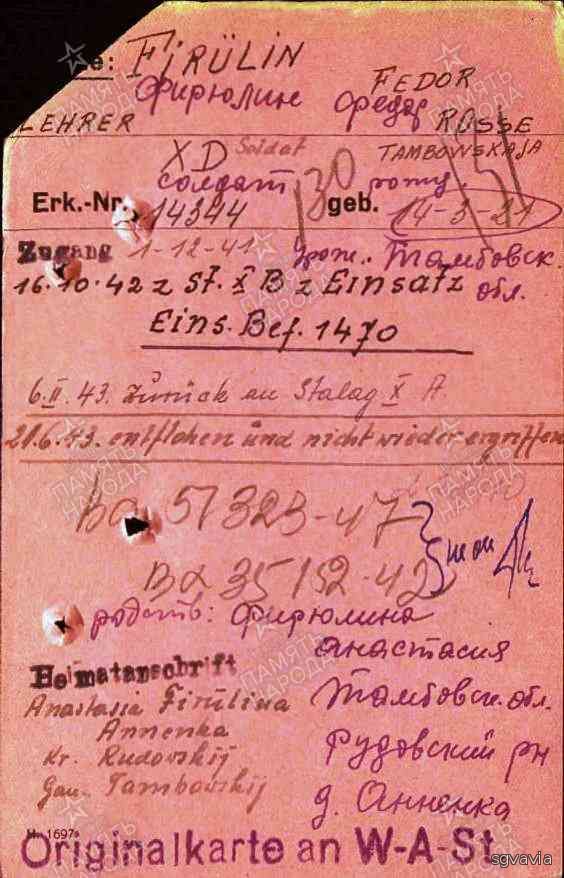 e: FIRÜLIN
Фирюлин
FEDOR
Федор
LEHRER
RUSSE
XD Soldat
TAMBOWSKAJA
солдат 130
Erk.-Nr. 214344 geb. 14-3-21
Zugang 1-12-41 урож. Тамбовск.
обл.
16.10.42 z St. X B z Einsatz
Eins. Bef. 1470
6.II.43. Zurück an Stalag X A.
21.6.43. entflohen und nicht wieder ergriffen
ва 51323-47
Вх 35152-42
родств: Фирюлина
Анастасия
Heimatanschrift
Тамбовск. обл.
Anastasia Firülina
Annenka
Рудовский рн
Kr. Rudovskij
Gau- Tambovskij
д. Анненка
M. 1697a
Originalkarte an W-A-St.
ПАМЯТЬ
НАРОДА
sgvavia